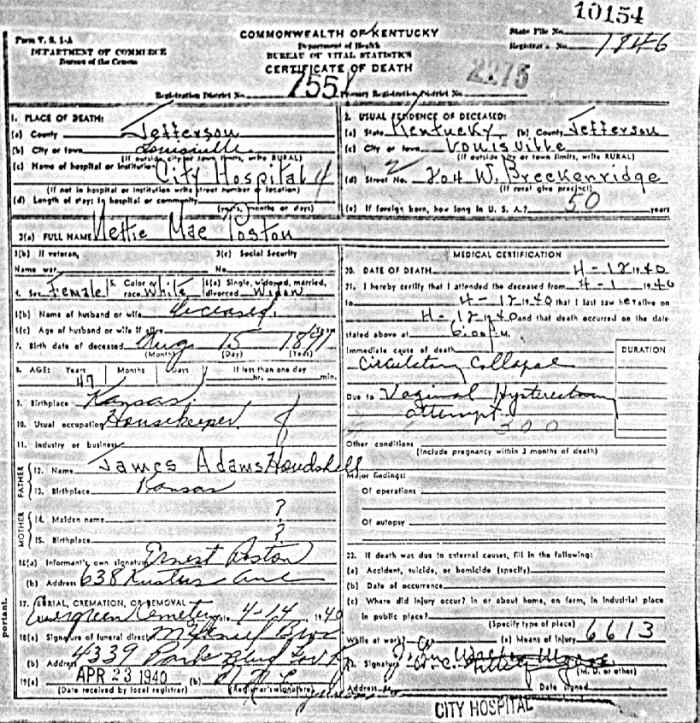 10154
Form V. S. 1-A
DEPARTMENT OF COMMERCE
Bureau of the Census
COMMONWEALTH OF KENTUCKY
Department of Health
BUREAU OF VITAL STATISTICS
CERTIFICATE OF DEATH
State File No.
Registrar's No. 1846
Registration District No. 755 Primary Registration District No. 2275
1. PLACE OF DEATH:
(a) County Jefferson
(b) City or town Louisville
(If outside city or town limits, write RURAL)
(c) Name of hospital or institution City Hospital
(If not in hospital or institution write street number or location)
(d) Length of stay: In hospital or community
(yrs., months or days)
2. USUAL RESIDENCE OF DECEASED:
(a) State Kentucky (b) County Jefferson
(c) City or town Louisville
(If outside city or town limits, write RURAL)
(d) Street No. 204 W. Breckenridge
(If rural give precinct)
(e) If foreign born, how long in U. S. A.? 50 years
3(a) FULL NAME Nettie Mae Poston
3(b) If veteran,
Name war
3(c) Social Security
No.
4. Sex Female 5. Color or race White 6(a) Single, widowed, married, divorced Widow
6(b) Name of husband or wife deceased
6(c) Age of husband or wife if alive years
7. Birth date of deceased Aug 15 1891
(Month) (Day) (Year)
8. AGE: Years Months Days If less than one day
47 hr. min.
9. Birthplace Kansas
10. Usual occupation Housekeeper
11. Industry or business
FATHER
12. Name James Adams Houdshell
13. Birthplace Kansas
MOTHER
14. Maiden name ?
15. Birthplace ?
16(a) Informant's own signature Ernest Poston
(b) Address 638
17. BURIAL, CREMATION, OR REMOVAL
Evergreen Cemetery Date 4-14 1940
18(a) Signature of funeral director Bros
(b) Address 4339 Park Blvd Lou Ky
19(a) APR 23 1940 (b)
(Date received by local registrar) (Registrar's signature)
MEDICAL CERTIFICATION
20. DATE OF DEATH 4-12 1940
21. I hereby certify that I attended the deceased from 4-1 1940
to 4-12 1940 that I last saw her alive on
4-12 1940 and that death occurred on the date
stated above at 6:00 P.M.
Immediate cause of death DURATION
Circulatory Collapse
Due to Vaginal Hysterectomy
attempt
300
Other conditions
(Include pregnancy within 3 months of death)
Major findings:
Of operations
Of autopsy
22. If death was due to external causes, fill in the following:
(a) Accident, suicide, or homicide (specify)
(b) Date of occurrence
(c) Where did injury occur? in or about home, on farm, in industrial place
in public place?
(Specify type of place)
While at work? (e) Means of injury 6613
23. Signature
(M. D. or other)
Address Date signed
CITY HOSPITAL
portant.